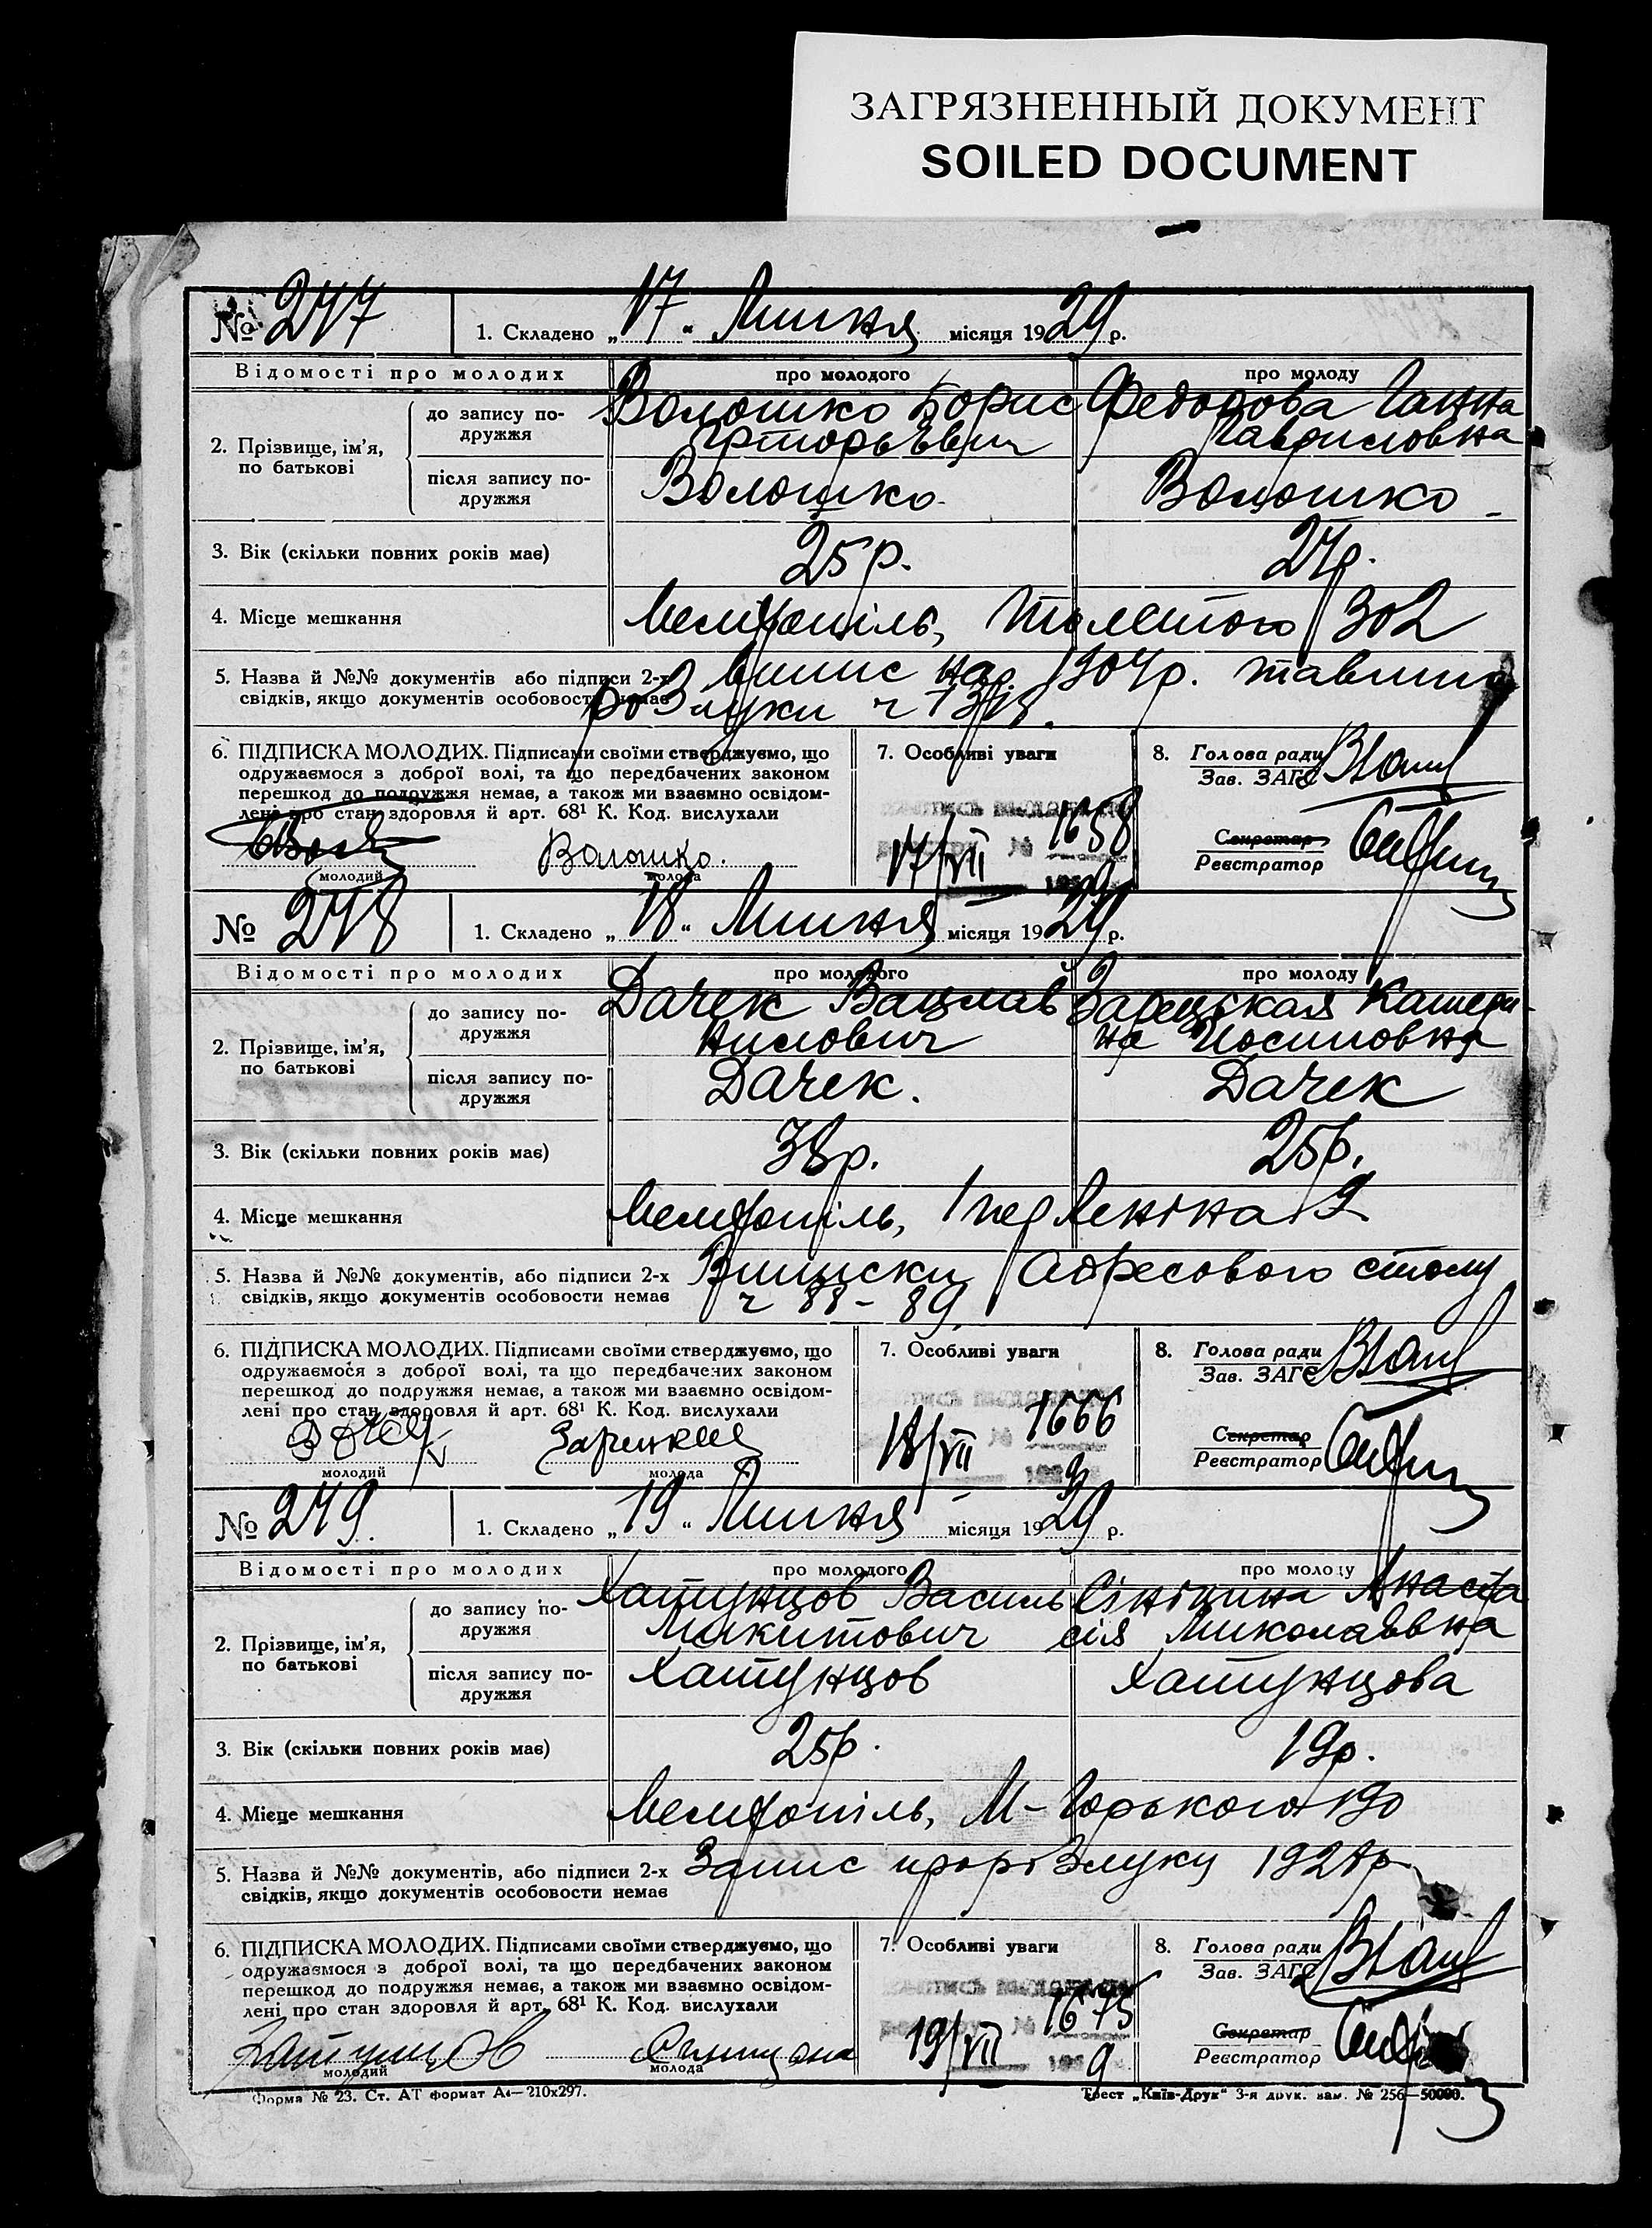 ЗАГРЯЗНЕННЫЙ ДОКУМЕНТ
SOILED DOCUMENT
№ 277
1. Складено „17“ Липня місяця 1929 р.
Відомості про молодих
про молодого
про молоду
2. Прізвище, ім’я, по батькові
до запису по-
дружжя
Волошко Борис
Федорова Ганна
Гавриловна
після запису по-
дружжя
Волошко
Волошко
3. Вік (скільки повних років має)
25 р.
27 р.
4. Місце мешкання
Мелітопіль, Толстого 302
5. Назва й №№ документів або підписи 2-х
свідків, якщо документів особовости немає
випис нар. 1904 р.
розлуки ч
6. ПІДПИСКА МОЛОДИХ. Підписами своїми стверджуємо, що
одружаємося з доброї волі, та що передбачених законом
перешкод до подружжя немає, а також ми взаємно освідом-
лені про стан здоровля й арт. 68¹ К. Код. вислухали
Волошко.
молодий
молода
7. Особливі уваги
1658
17/VII
9
8. Голова ради
Зав. ЗАГС
Секретар
Реєстратор
№ 278
1. Складено „18“ Липня місяця 1929 р.
Відомості про молодих
про молодого
про молоду
2. Прізвище, ім’я,
по батькові
до запису по-
дружжя
Дачек Вацлав
Зарецькая Катери-
на Иосиповна
після запису по-
дружжя
Дачек.
Дачек
3. Вік (скільки повних років має)
38 р.
25 р.
4. Місце мешкання
Мелітопіль, 1 пер Леніна 2
5. Назва й №№ документів, або підписи 2-х
свідків, якщо документів особовости немає
Виписки Адресового столу
ч 88 – 89.
6. ПІДПИСКА МОЛОДИХ. Підписами своїми стверджуємо, що
одружаємося з доброї волі, та що передбачених законом
перешкод до подружжя немає, а також ми взаємно освідом-
лені про стан здоровля й арт. 68¹ К. Код. вислухали
молодий
молода
7. Особливі уваги
1666
18/VII
9
8. Голова ради
Зав. ЗАГС
Секретар
Реєстратор
№ 279.
1. Складено „19“ Липня місяця 1929 р.
Відомості про молодих
про молодого
про молоду
2. Прізвище, ім’я,
по батькові
до запису по-
дружжя
Хатунцов Василь
Микитович
Сініцина Анаста
сія Миколаевна
після запису по-
дружжя
Хатунцов
Хатунцова
3. Вік (скільки повних років має)
25 р.
19 р.
4. Місце мешкання
Мелітопіль, М-Горького 190
5. Назва й №№ документів, або підписи 2-х
свідків, якщо документів особовости немає
Запис про розлуку
6. ПІДПИСКА МОЛОДИХ. Підписами своїми стверджуємо, що
одружаємося з доброї волі, та що передбачених законом
перешкод до подружжя немає, а також ми взаємно освідом-
лені про стан здоровля й арт. 68¹ К. Код. вислухали
молодий
молода
7. Особливі уваги
1675
19/VII
9
8. Голова ради
Зав. ЗАГС
Секретар
Реєстратор
Форма № 23. Ст. АТ формат А₄—210х297.
Трест „Київ-Друк“ 3-я друк. зам. № 256—50000.